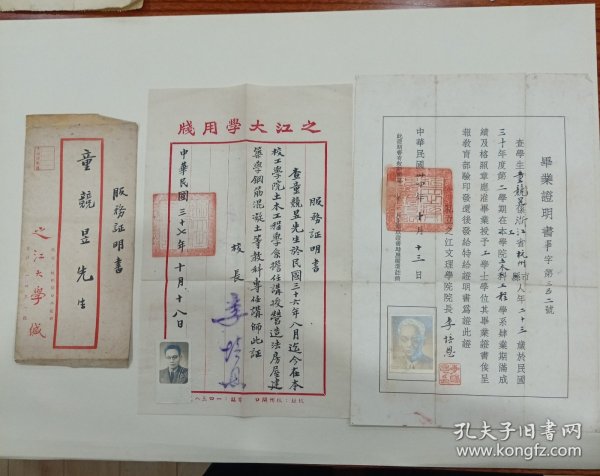 服務証明書
童競昱先生
之江大學緘
之江大學用牋
服務証明書
查童競昱先生於民國三十六年八月迄今在本
校工學院土木工程學系擔任講授營造法房屋建
築學鋼筋混凝土等教科專任講師此証
校長 李培恩
中華民國三十七年十月十八日
畢業證明書
字第三五二號
查學生童競昱係浙江省杭州市人年二十三歲於民國
三十年度第二學期在本學院土木工程學系肄業期滿成
績及格照章應准畢業授予工學士學位其畢業證書俟呈
報教育部驗印發還後發給特給證明書爲證此證
之江文理學院院長李培恩
中華民國卅年十月十三日
孔夫子旧书网
kongfz.com